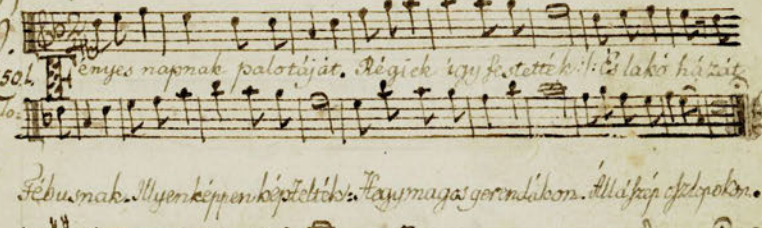 50l. Fényes napnak palotáját. Régiek így festették :|: És lakó házát
Fébusnak. Illyenképpen képzelték: Hogy magos gerendákon. Áll á szép oszlopokon.